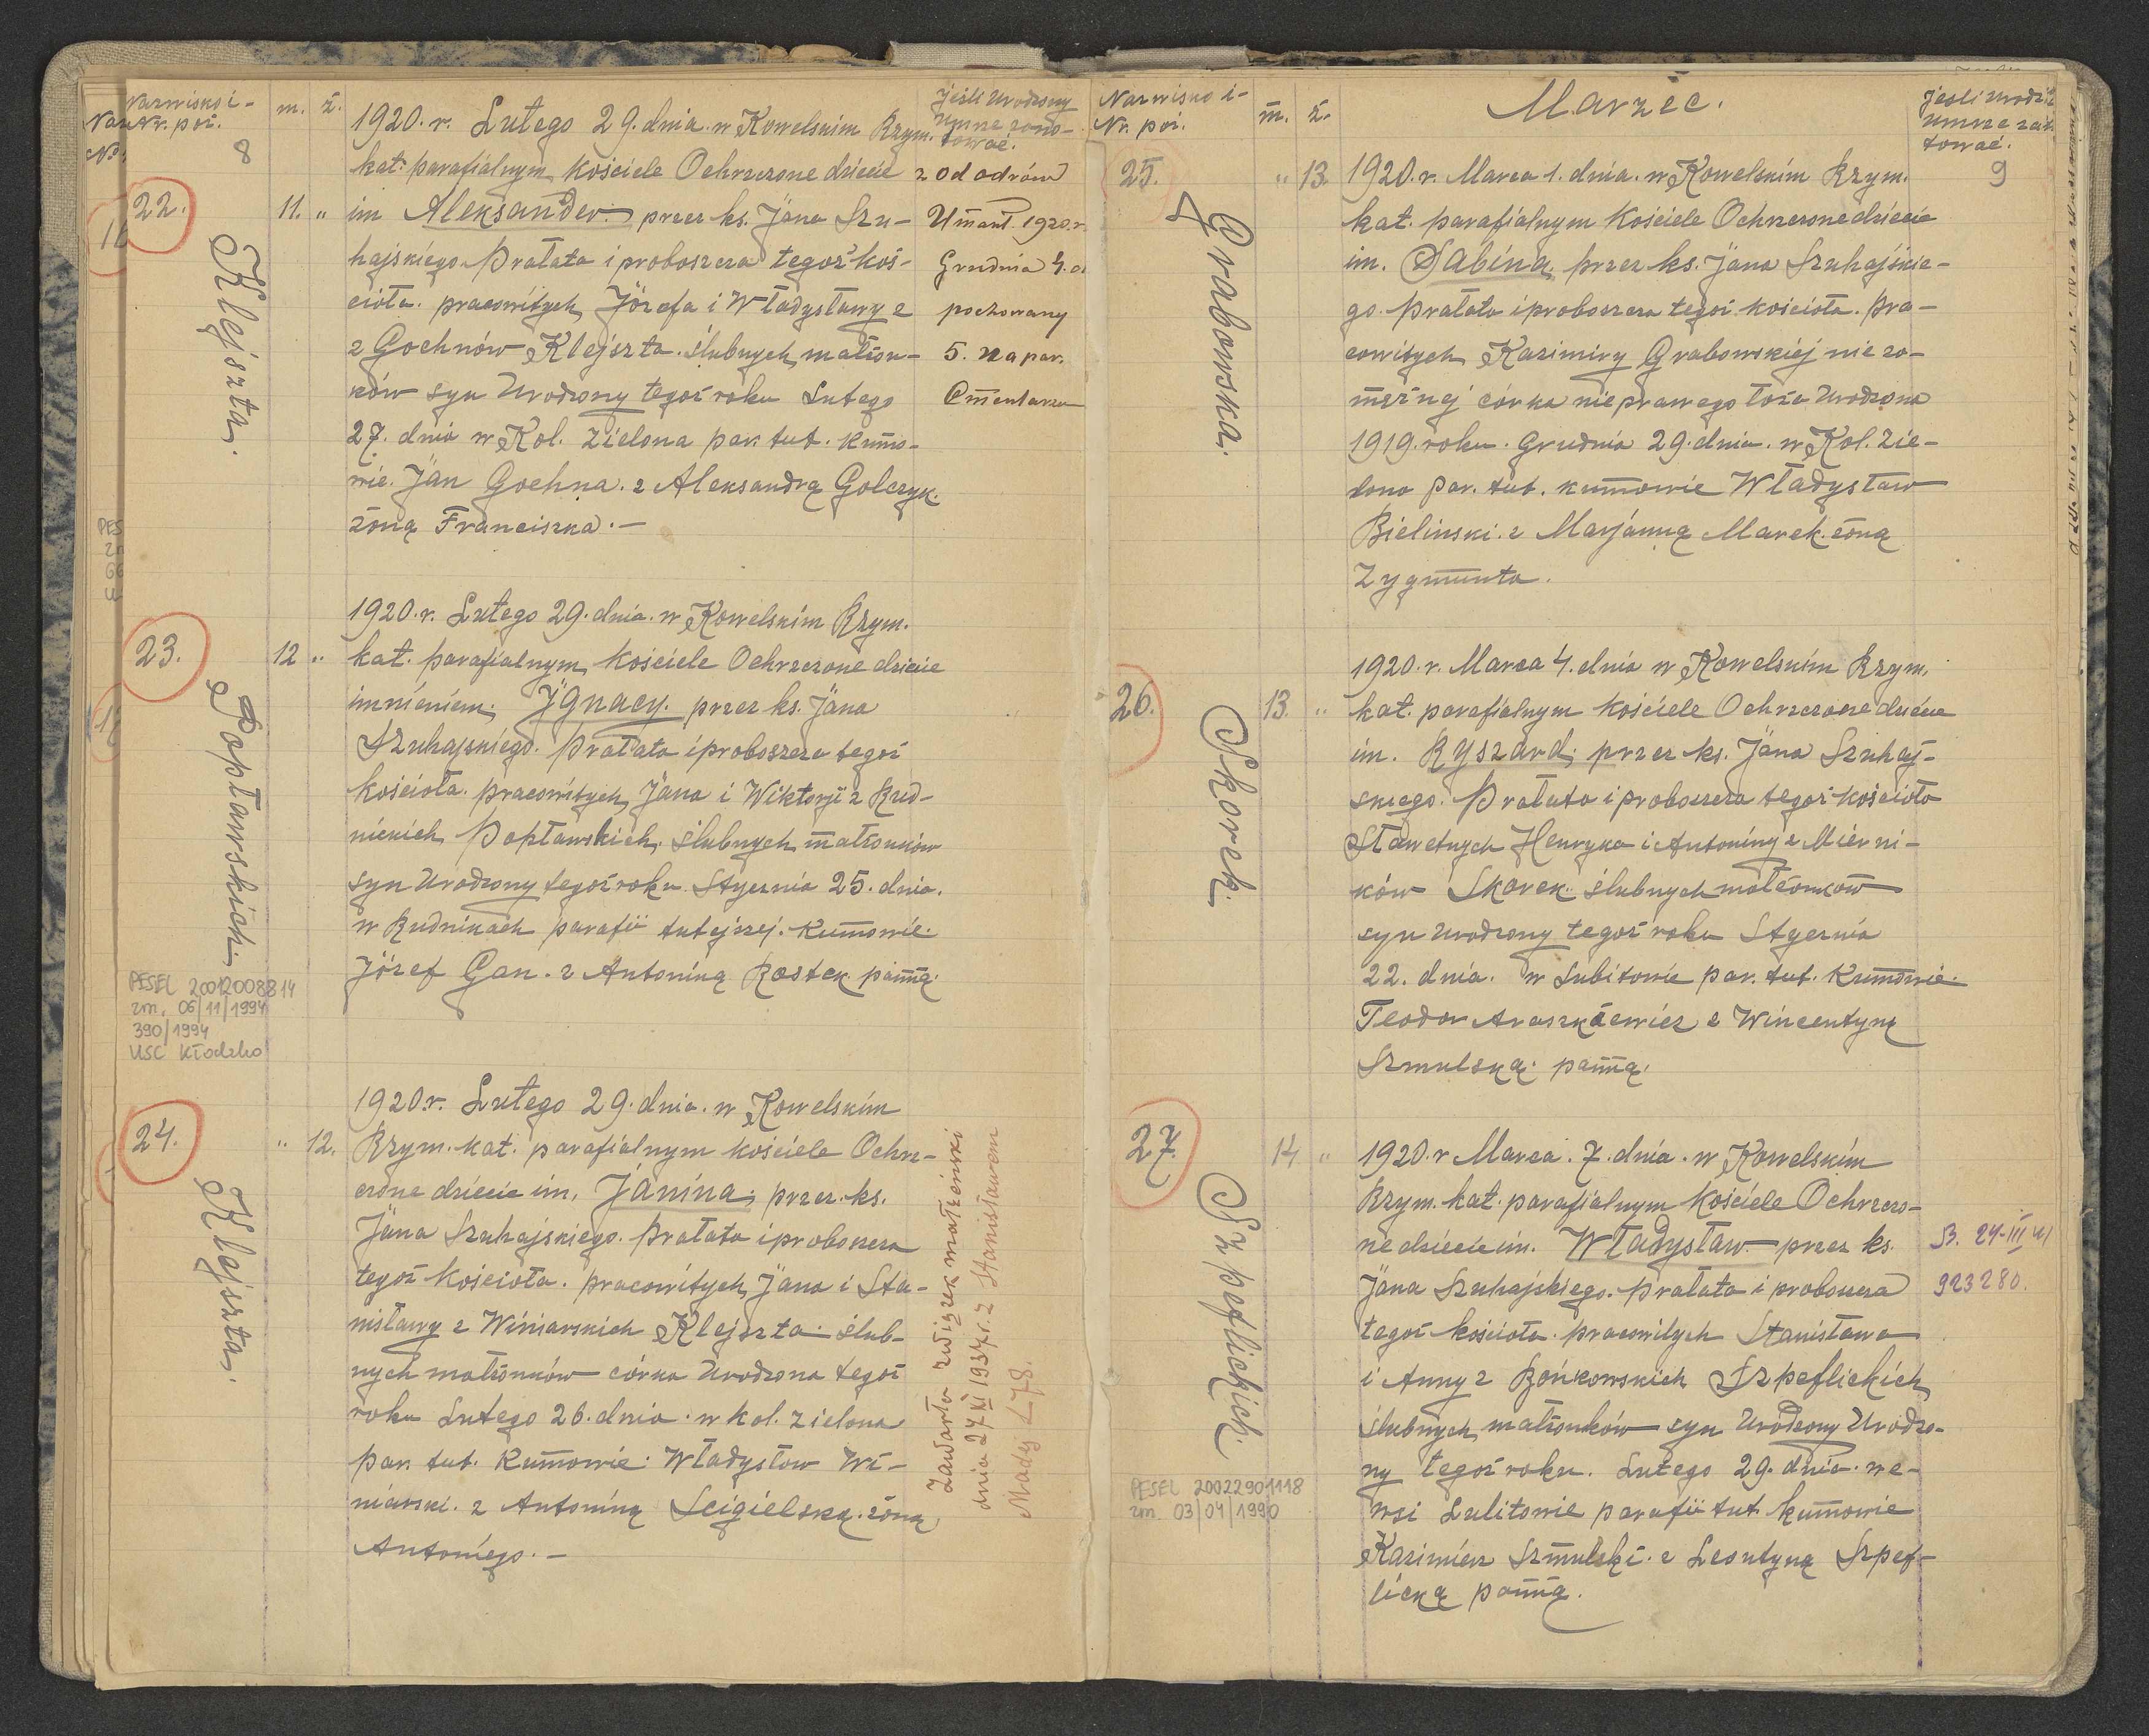 Nazwisko i-
Nr. poż.
m. ż.
8
Jeśli Urodzony
umrze zano-
tować.
22.
Klejszta.
11. "
1920. r. Lutego 29. dnia. w Kowelskim Rzym.
kat. parafialnym Kościele Ochrzczone dziecie
im Aleksander. przez ks. Jana Szu-
hajskiego. Prałata i proboszcza tegoż koś-
cioła. pracowitych, Józefa i Władysławy z
z Gochnów Klejszta. ślubnych małżon-
ków syn Urodzony tegoż roku Lutego
27. dnia w Kol. Zielona par. tut. kumo-
wie. Jan Gochna. z Aleksandrą Golczyk.
żoną Franciszka. —
z od odrów
Umarł. 1920. r.
Grudnia 4. d
pochowany
5. na par.
Cmentarzu
23.
Popławskich.
12 "
1920. r. Lutego 29. dnia. w Kowelskim Rzym.
kat. parafialnym, Kościele Ochrzczone dziecie
imnieniem; Ignacy. przez ks. Jana
Szuhajskiego. Prałata i proboszcza tegoż
kościoła. pracowitych, Jana i Wiktorji z Rud-
nickich Popławskich, ślubnych małżonków
syn Urodzony tegoż roku Stycznia 25. dnia.
w Rudnikach parafii tutejszej. Kumowie.
Józef Gan. z Antoniną Rostek panną.
PESEL 20012008814
zm. 06/11/1994
390/1994
USC Kłodzko
24.
Klejszta.
" 12.
1920. r. Lutego 29. dnia. w Kowelskim
Rzym. kat. parafialnym kościele Ochrz-
czone dziecie im. Janina; przez. ks.
Jana Szuhajskiego. Prałata i proboszcza
tegoż Kościoła. pracowitych, Jana i Sta-
nisławy z Winiarskich Klejszta ślub-
nych małżonków córka Urodzona tegoż
roku Lutego 26. dnia. w kol. Zielona
par. tut. Kumowie: Władysłow Wi-
niarski. z Antoniną Scigielską. żoną
Antoniego. —
Zawarła związek małżeński
dnia 27 XI 1937 r. z Stanisławem
Madej L 78.
Nazwisko i-
Nr. poż.
m. ż.
Marzec.
Jeśli urodz
umrze zan
tować.
9
25.
Grabowska.
" 13.
1920. r. Marca 1. dnia. w Kowelskim Rzym.
kat. parafialnym Kościele Ochrzczone dziecie
im. Sabina, przez ks. Jana Szuhajskie-
go. Prałata i proboszcza tegoż kościoła. pra-
cowitych Kazimiry Grabowskiej nie za-
mężnej córka nieprawego łoża Urodzona
1919. roku. Grudnia 29. dnia. w Kol. Zie-
lona par. tut. kumowie Władysław
Bielinski. z Marjanną Marek. żoną
Zygmunta.
26.
Skorek.
13. "
1920. r. Marca 4. dnia w Kowelskim Rzym.
kat. parafialnym Kościele Ochrzczone dziecie
im. Ryszard; przez ks. Jana Szuhaj-
skiego. Prałata i proboszcza tegoż kościoła
Sławetnych Henryka i Antoniny z Mierni-
ków Skorek ślubnych małżonków
syn urodzony tegoż roku Stycznia
22. dnia. w Lubitowie par. tut. Kumowie.
Teodor Araszkiewicz z Wincentyną
Szmulską. panną.
27.
Szpeflickich.
14 "
1920. r Marca. 7. dnia. w Kowelskim
Rzym. kat. parafialnym Kościele Ochrzczo-
ne dziecie im. Władysław przez ks.
Jana Szuhajskiego. Prałata i proboszcza
tegoż kościoła. pracowitych Stanisława
i Anny z Bońkowskich Szpeflickich,
ślubnych małżonków syn Urodzony Urodzo-
ny tegoż roku. Lutego 29. dnia. we-
wsi Lulitowie parafii tut. kumowie
Kazimierz Szmulski. z Leontyną Szpef-
licką panną.
B. 24-III 41
923280.
PESEL 20022901118
zm. 03/04/1990